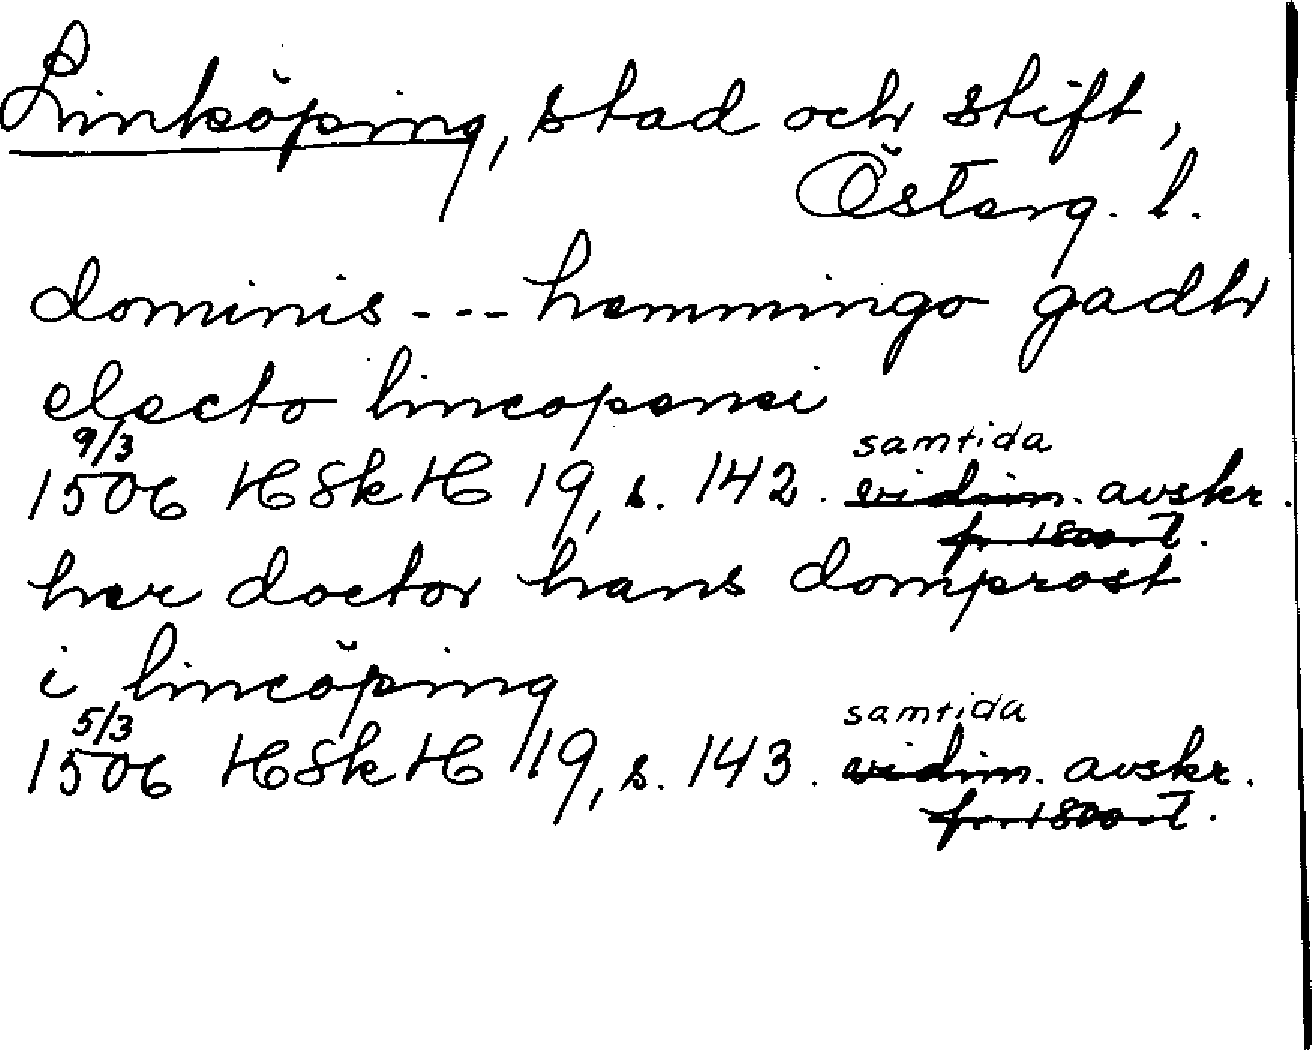 Linköping, stad och stift,
Österg. l.
dominis --- hemmingo gadh
electo lincopensi
9/3
samtida
1506 HSkH 19, s. 142. vidim. avskr.
fr. 1800-t.
her doctor hans domprost
i lincöping
5/3
samtida
1506 HSkH 19, s. 143. vidim. avskr.
fr. 1800-t.